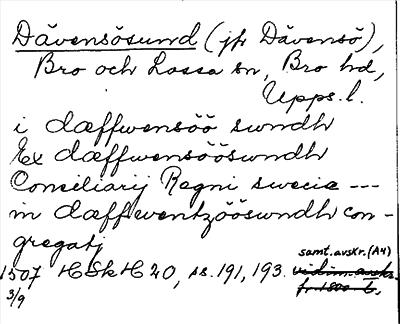 Dävensösund (jfr Dävensö),
Bro och Lossa sn, Bro hd,
Upps. l.
i dæffwensöö swndh
Ex dæffwensööswndh
Consiliarij Regni swecie ---
in dæffwentzööswndh con-
gregatj
samt. avskr. (A4)
1507 HSkH 20, ss. 191, 193. vidim. avskr.
3/9 fr. 1500-t.